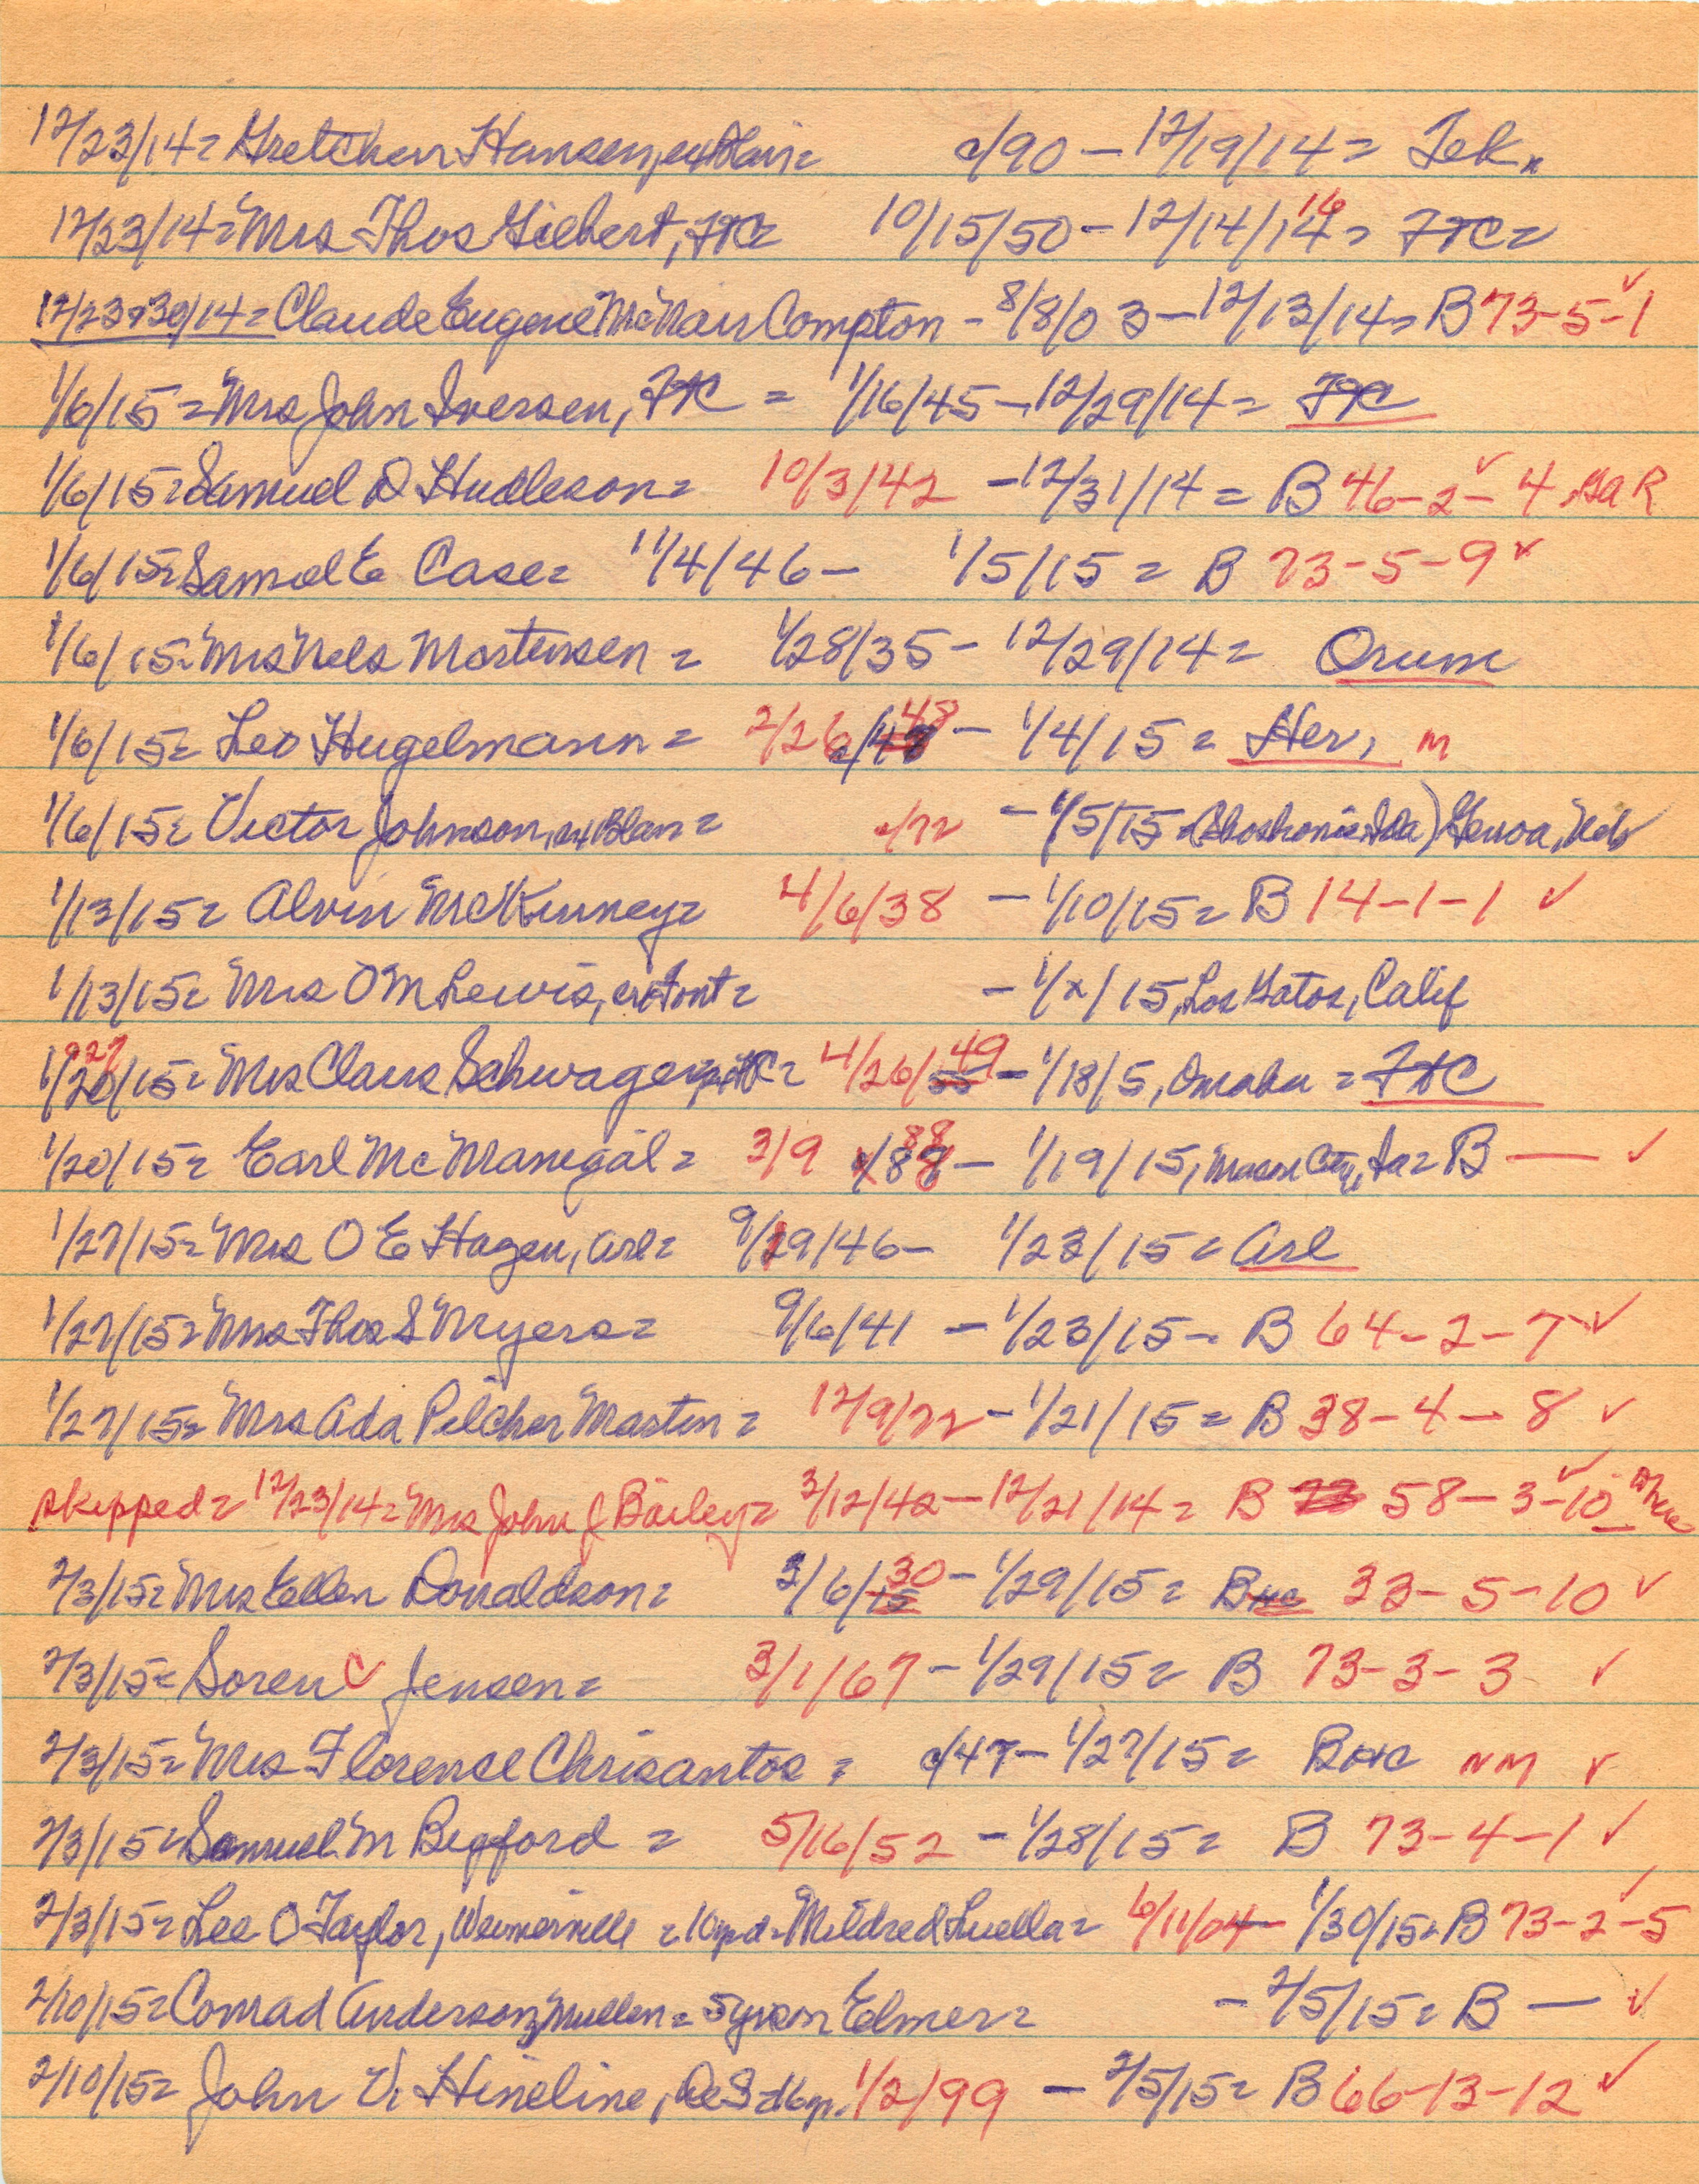 12/23/14= Gretchen Hansen, ex Blair= c/90 - 12/19/14= Tek.
12/23/14= Mrs Thos Giebert, FTC= 10/15/50 - 12/14/14 16 = FTC=
12/23+30/14= Claude Eugene McNair Compton - 8/8/03 - 12/13/14= B 73-5-1 ✓
1/6/15= Mrs John Iversen, FTC = 1/16/45 - 12/29/14= FTC
1/6/15= Samuel D Hudleson= 10/3/42 - 12/31/14= B 46-2-4, GAR ✓
1/6/15= Samuel E Case= 11/4/46 - 1/5/15 = B 73-5-9 ✓
1/6/15= Mrs Nels Mortensen = 1/28/35 - 12/29/14= Orum
1/6/15= Leo Hugelmann = 2/26/48 - 1/4/15 = Her, m
1/6/15= Victor Johnson, ex Blair= c/72 - 1/5/15= (Shoshonie, Ida) Genoa, Neb
1/13/15= Alvin McKinney= 4/6/38 - 1/10/15= B 14-1-1 ✓
1/13/15= Mrs O M Lewis, ex Font= - 1/x/15, Los Gatos, Calif
1/20/15= Mrs Claus Schwager, FTC= 4/26/49 - 1/18/5, Omaha = FTC
1/20/15= Earl McManigal= 3/9 /88 - 1/19/15, Mason City, Ia= B — ✓
1/27/15= Mrs O E Hagen, Arl= 9/29/46 - 1/23/15= Arl
1/27/15= Mrs Thos S Myers= 9/6/41 - 1/23/15= B 64-2-7 ✓
1/27/15= Mrs Ada Pilcher Martin= 12/9/72 - 1/21/15= B 38-4-8 ✓
skipped= 12/23/14= Mrs John J Bailey= 3/12/42 - 12/21/14= B 73 58-3-10 ✓
2/3/15= Mrs Ellen Donaldson= 3/6/15 30 - 1/29/15= BHC 33-5-10 ✓
2/3/15= Soren C Jensen= 3/1/67 - 1/29/15= B 73-3-3 ✓
2/3/15= Mrs Florence Chrisantos = c/47 - 1/27/15= BHC NM ✓
2/3/15= Samuel M Bigford = 5/16/52 - 1/28/15= B 73-4-1 ✓
2/3/15= Lee O Taylor, = 10yr d= Mildred Luella= 6/11/04 - 1/30/15= B 73-2-5 ✓
2/10/15= Conrad Anderson, Mullen= 5yr son Elmer= - 2/5/15= B — ✓
2/10/15= John V. Hineline, 1/2/99 - 2/5/15= B 66-13-12 ✓